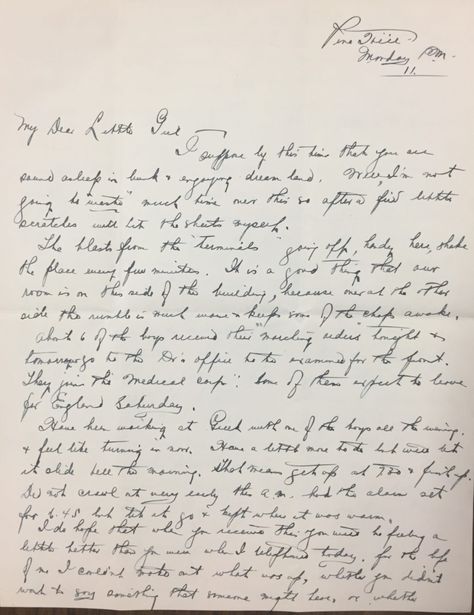 Pine Hill
Monday P.M.
11.
My Dear Little Girl
I suppose by this time that you are
sound asleep in bunk & enjoying dream land. Well, I'm not
going to "waste" much time over this so after a few little
scratches will hit the sheets myself.
The blasts from the "terminals" going off, handy here, shake
the place every few minutes. It is a good thing that our
room is on this side of the building, because over at the other
side the rumble is much worse & keeps some of the chaps awake.
About 6 of the boys received their "marching orders" tonight &
tomorrow go to the Dr's office to be examined for the front.
They join the "Medical corps". Some of them expect to leave
for England Saturday.
Have been working at with one of the boys all the evening
& feel like turning in now. Have a little more to do but will let
it slide till the morning. That means get up at 7.00 & finish up.
Did not crawl out very early this a.m. had the alarm set
for 6.45 but let it go & slept when it was warm.
I do hope that when you receive this you will be feeling a
little better than you were when I telephoned today. For the life
of me I couldn't make out what was up, whether you didn't
want to say something that someone might hear, or whether